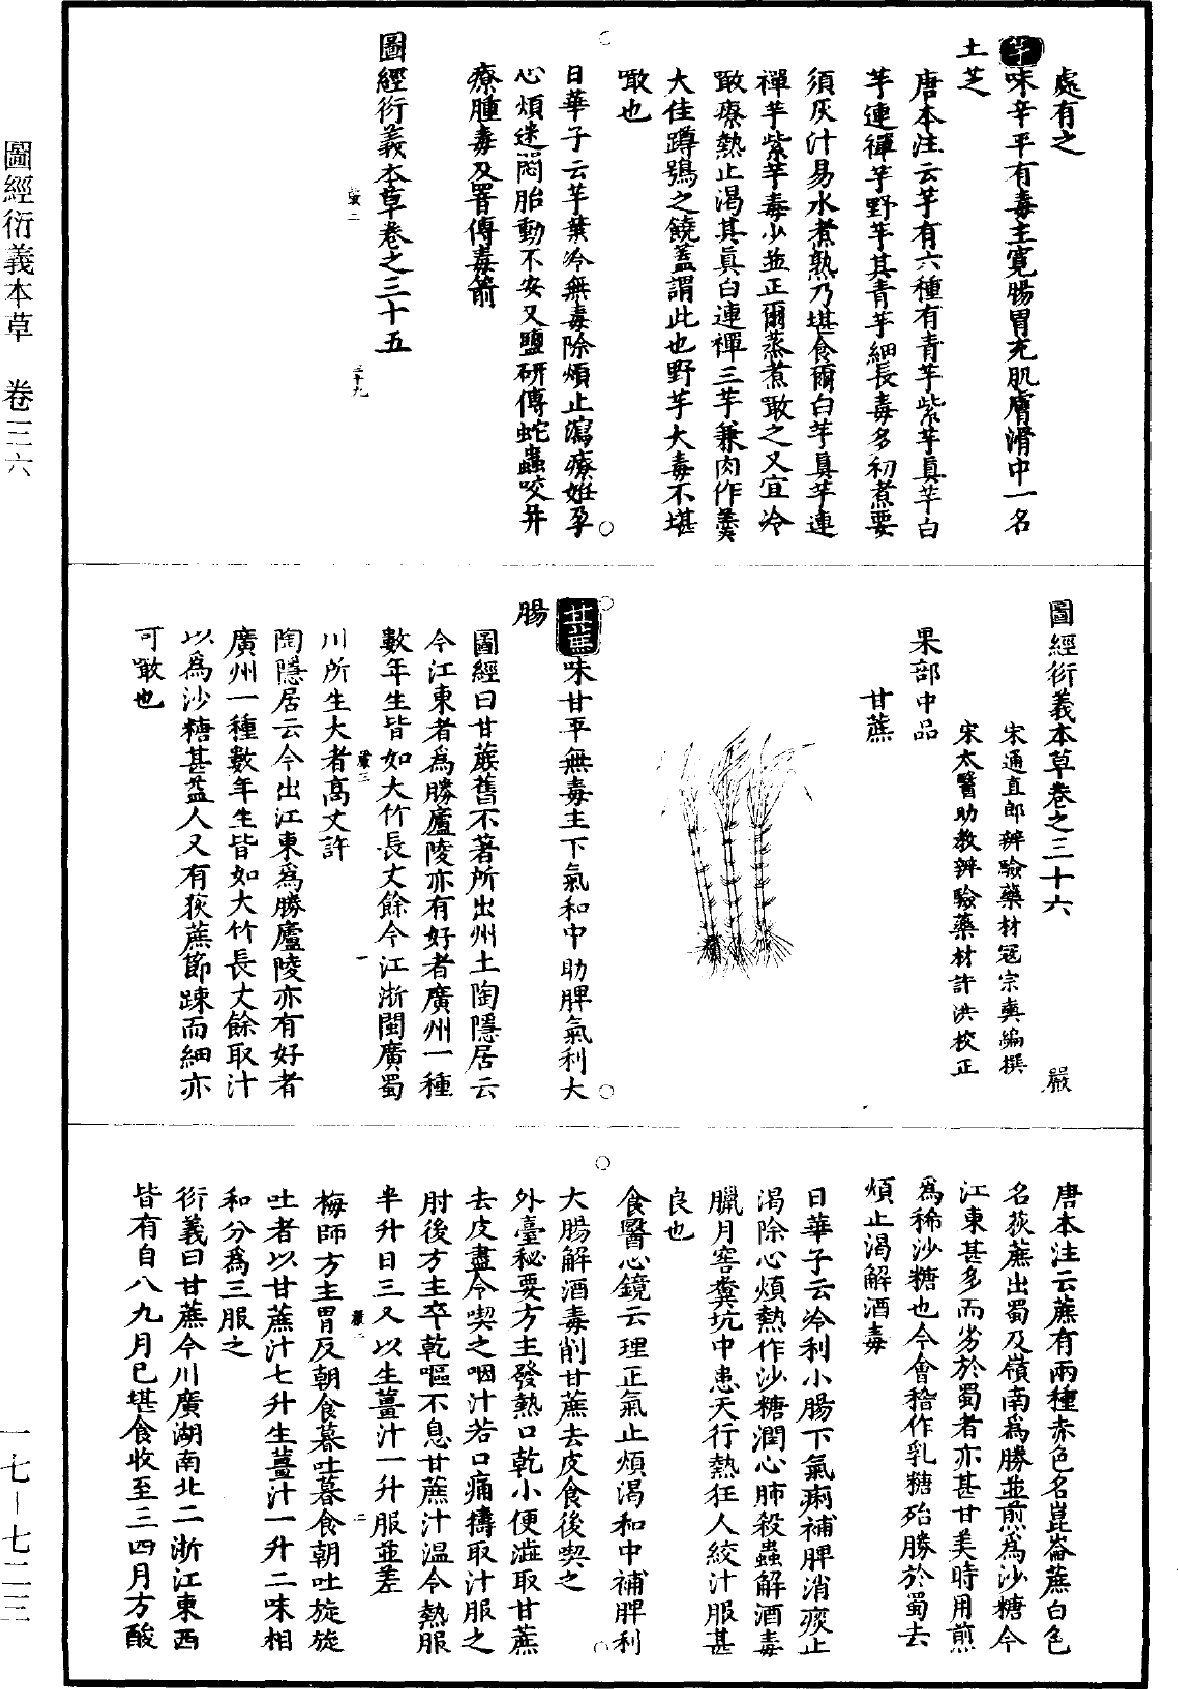 圖經衍義本草　卷三六
一七－七二三
處有之
芋味辛平有毒主寬腸胃充肌膚滑中一名
土芝
唐本注云芋有六種有青芋紫芋真芋白
芋連禪芋野芋其青芋細長毒多初煮要
須灰汁易水煮熟乃堪食爾白芋真芋連
禪芋紫芋毒少並正爾蒸煮噉之又宜冷
噉療熱止渴其真白連禪三芋兼肉作羹
大佳蹲鴟之饒蓋謂此也野芋大毒不堪
噉也
日華子云芋葉冷無毒除煩止瀉療姙孕
心煩迷悶胎動不安又鹽研傅蛇蟲咬并
療腫毒及署傅毒箭
圖經衍義本草卷之三十五
圖經衍義本草卷之三十六　嚴
宋通直郎辨驗藥材冦宗奭編撰
宋太醫助教辨驗藥材許洪校正
果部中品
甘蔗
甘蔗味甘平無毒主下氣和中助脾氣利大
腸
圖經曰甘蔗舊不著所出州土陶隱居云
今江東者爲勝廬陵亦有好者廣州一種
數年生皆如大竹長丈餘今江浙閩廣蜀
川所生大者高丈許
陶隱居云今出江東爲勝廬陵亦有好者
廣州一種數年生皆如大竹長丈餘取汁
以爲沙糖甚益人又有荻蔗節踈而細亦
可噉也
唐本注云蔗有兩種赤色名崑崙蔗白色
名荻蔗出蜀及嶺南爲勝並煎爲沙糖今
江東甚多而劣於蜀者亦甚甘美時用煎
爲稀沙糖也今會稽作乳糖殆勝於蜀去
煩止渴解酒毒
日華子云冷利小腸下氣痢補脾消痰止
渴除心煩熱作沙糖潤心肺殺蟲解酒毒
臘月窖糞坑中患天行熱狂人絞汁服甚
良也
食醫心鏡云理正氣止煩渴和中補脾利
大腸解酒毒削甘蔗去皮食後喫之
外臺秘要方主發熱口乾小便澁取甘蔗
去皮盡令喫之咽汁若口痛擣取汁服之
肘後方主卒乾嘔不息甘蔗汁溫令熱服
半升日三又以生薑汁一升服並差
梅師方主胃反朝食暮吐暮食朝吐旋旋
吐者以甘蔗汁七升生薑汁一升二味相
和分爲三服之
衍義曰甘蔗今川廣湖南北二浙江東西
皆有自八九月已堪食收至三四月方酸